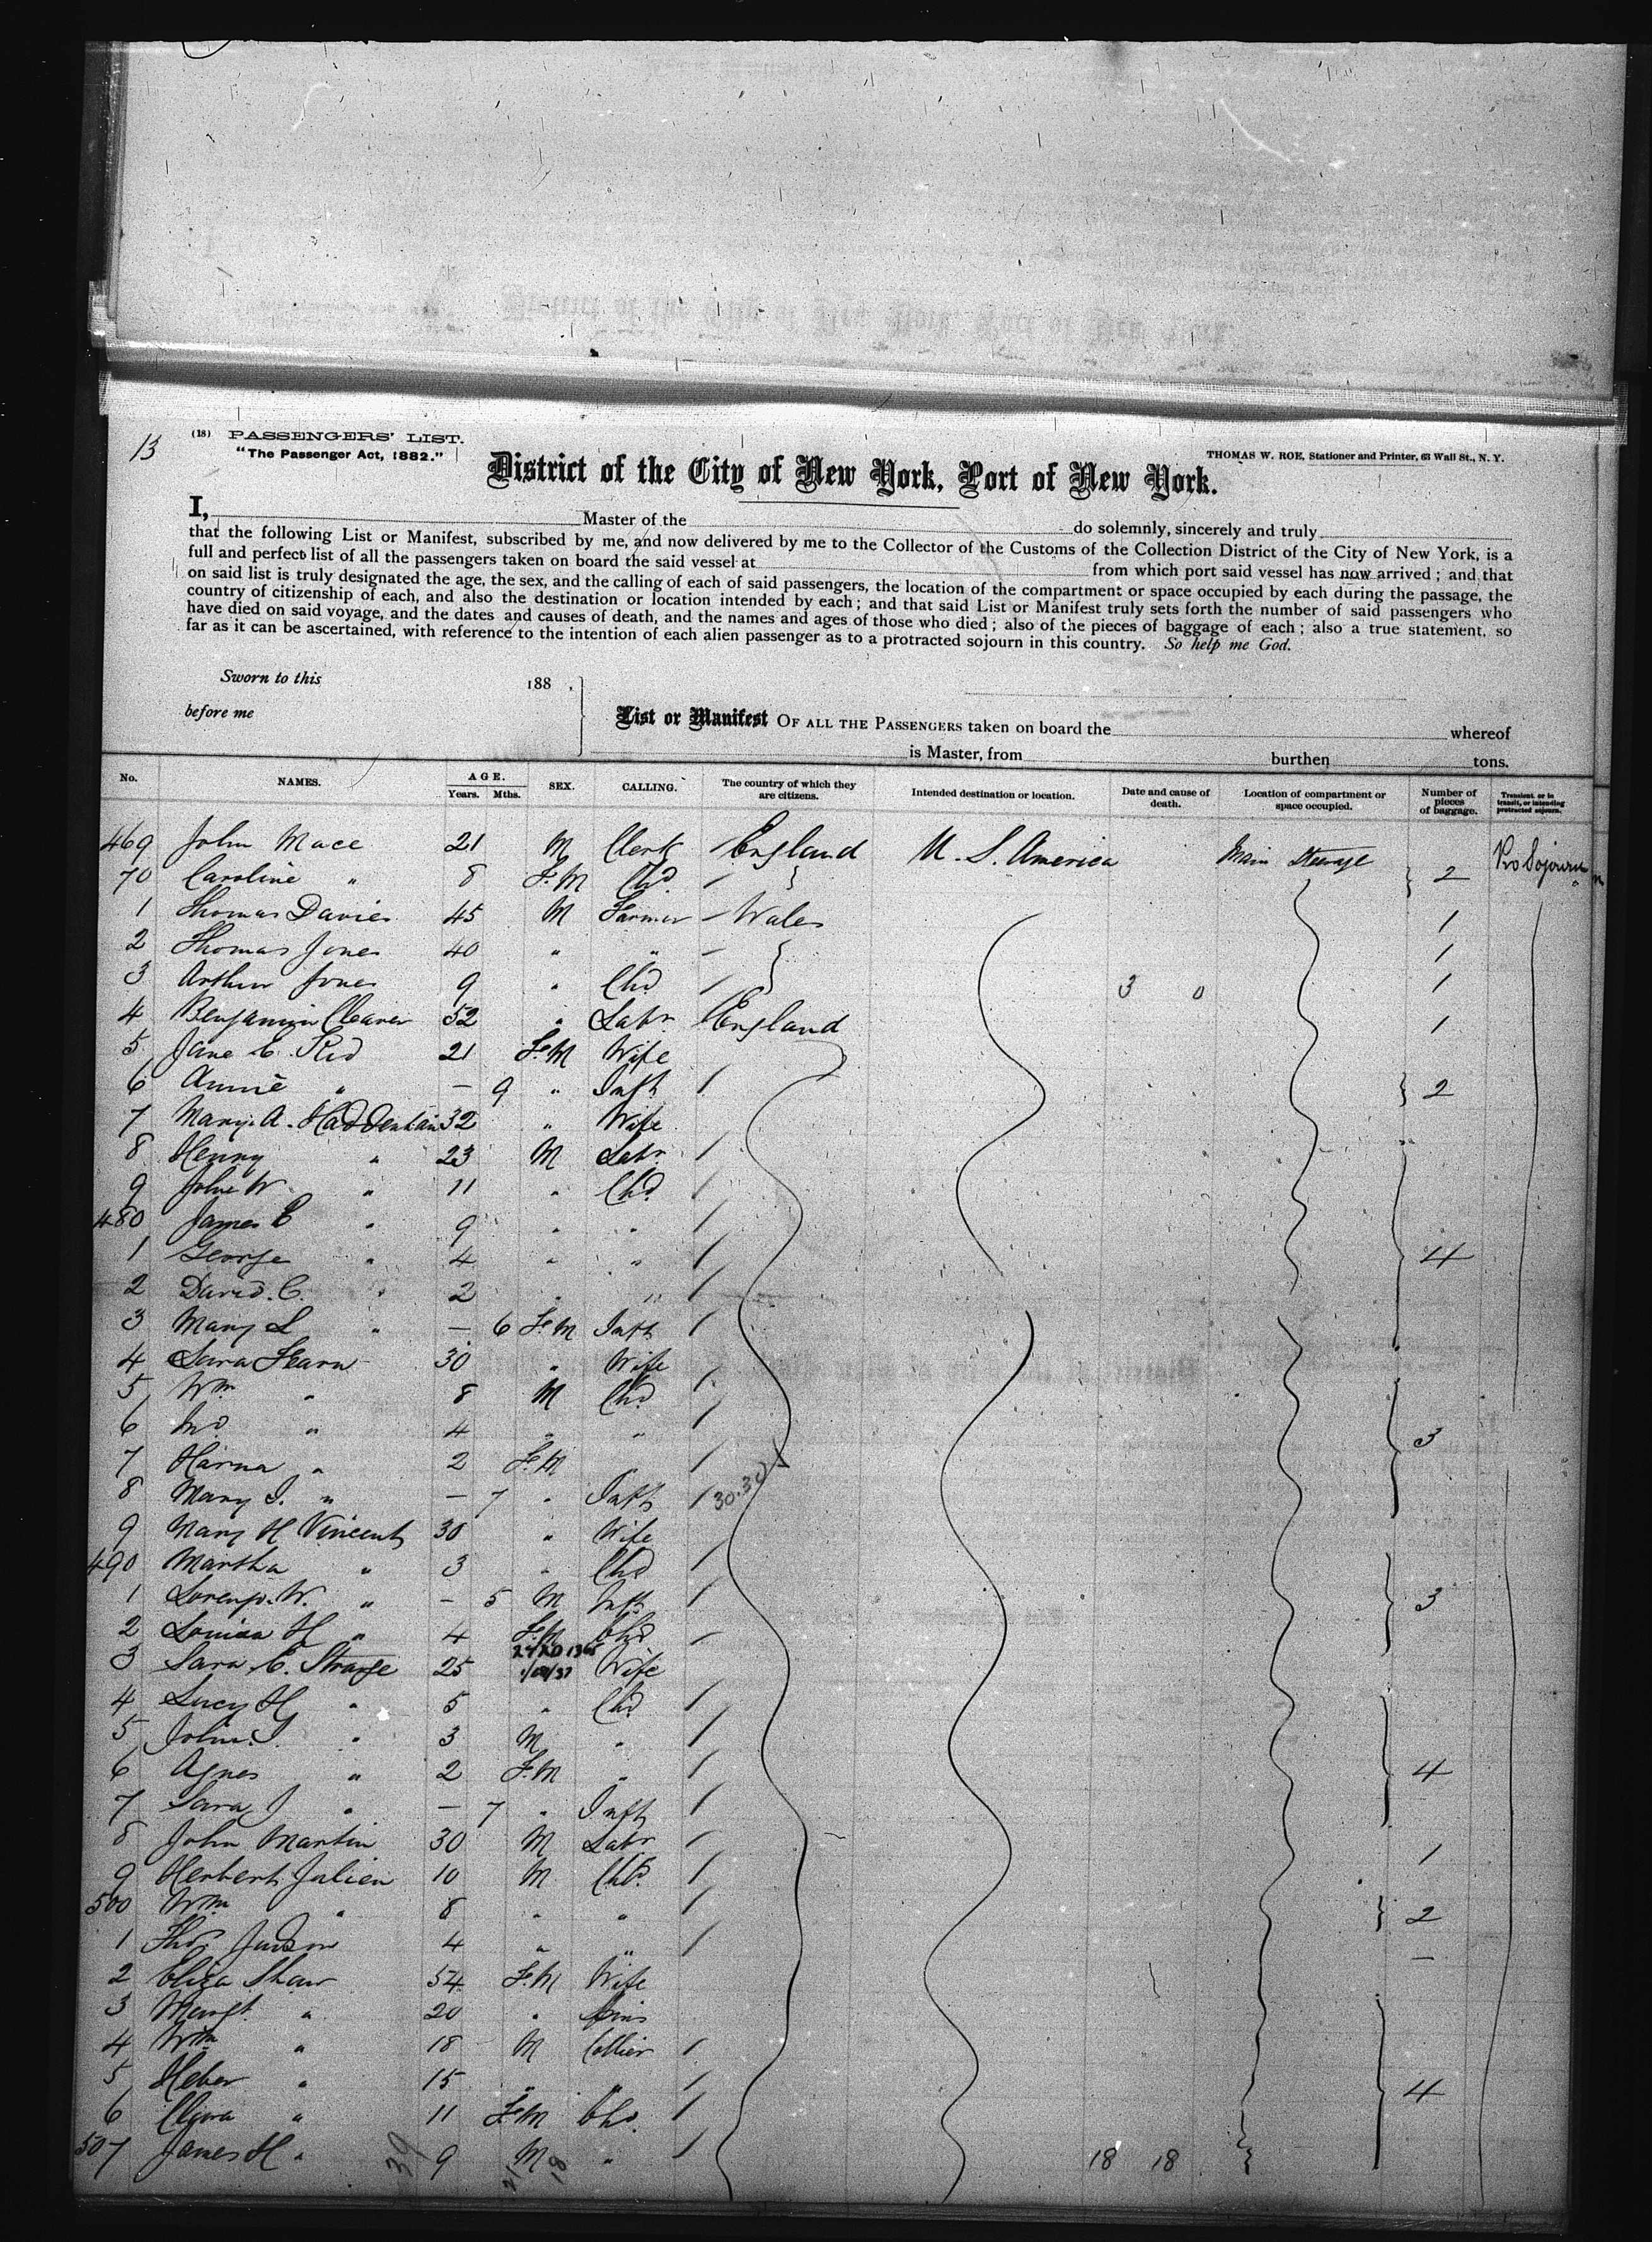 13
(18) PASSENGERS' LIST.
"The Passenger Act, 1882."
THOMAS W. ROE, Stationer and Printer, 63 Wall St., N. Y.
District of the City of New York, Port of New York.
I, Master of the do solemnly, sincerely and truly
that the following List or Manifest, subscribed by me, and now delivered by me to the Collector of the Customs of the Collection District of the City of New York, is a
full and perfect list of all the passengers taken on board the said vessel at from which port said vessel has now arrived; and that
on said list is truly designated the age, the sex, and the calling of each of said passengers, the location of the compartment or space occupied by each during the passage, the
country of citizenship of each, and also the destination or location intended by each; and that said List or Manifest truly sets forth the number of said passengers who
have died on said voyage, and the dates and causes of death, and the names and ages of those who died; also of the pieces of baggage of each; also a true statement, so
far as it can be ascertained, with reference to the intention of each alien passenger as to a protracted sojourn in this country. So help me God.
Sworn to this 188 .
before me
List or Manifest OF ALL THE PASSENGERS taken on board the whereof
is Master, from burthen tons.
No. NAMES. AGE. Years. Mths. SEX. CALLING. The country of which they are citizens. Intended destination or location. Date and cause of death. Location of compartment or space occupied. Number of pieces of baggage. Transient or in transit, or intending protracted sojourn.
469 John Mace 21 M Clerk England U. S. America Main Steerage Pro Sojourn
70 Caroline " 8 F.M Chd. 2 "
1 Thomas Davies 45 M Farmer Wales 1
2 Thomas Jones 40 " " 1
3 Arthur Jones 9 " Chd 3 0 1
4 Benjamin Cleaver 52 " Labr. England 1
5 Jane C. Kid 21 F.M Wife
6 Annie " — 9 " Inft 2
7 Mary A. Haddenham 32 " Wife
8 Henry " 23 M Labr.
9 John W " 11 " Chd.
480 James E " 9 " "
1 George " 4 " " 4
2 David. C. " 2 " "
3 Mary L " — 6 F.M Inft
4 Sara Hearn 30 " Wife
5 Wm " 8 M Chd.
6 Jno " 4 " " 3
7 Hanna " 2 F.M
8 Mary J. " — 7 " Inft 30.30
9 Mary H Vincent 30 " Wife
490 Martha " 3 " Chd
1 Lorenzo. W. " — 5 M Inft 3
2 Louisa H " 4 F.M Chd
3 Sara C. Strange 25 " Wife
4 Lucy H " 5 " Chd
5 John. J " 3 M "
6 Agnes " 2 F.M " 4
7 Sara J " — 7 " Inft
8 John Martin 30 M Labr 1
9 Herbert Julien 10 M Chd.
500 Wm " 8 " " 2
1 Thos Judson 4 " " —
2 Eliza Shaw 54 F.M Wife
3 Margt. " 20 "
4 Wm " 18 M Collier
5 Heber " 15 " " 4
6 Clara " 11 F.M Chd.
507 James H " 9 M " 18 18
39 21 18